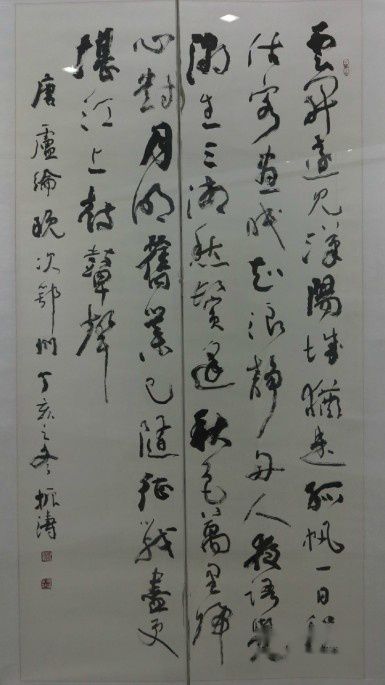 雲開遠見漢陽城猶是孤帆一日程
估客晝眠知浪靜舟人夜語覺
潮生三湘愁鬢逢秋色萬里歸
心對月明舊業已隨征戰盡更
堪江上鼓鼙聲
唐盧綸晚次鄂州丁亥之冬振濤